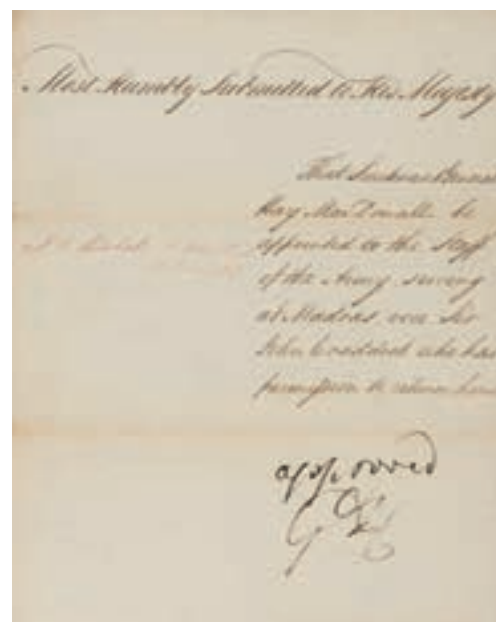 Most Humbly Submitted to His Majesty
That
Hay MacDowall be
appointed to the Staff
of the Army serving
at Madras vice Sir
John Craddock who has
permission to return home
approved
GR